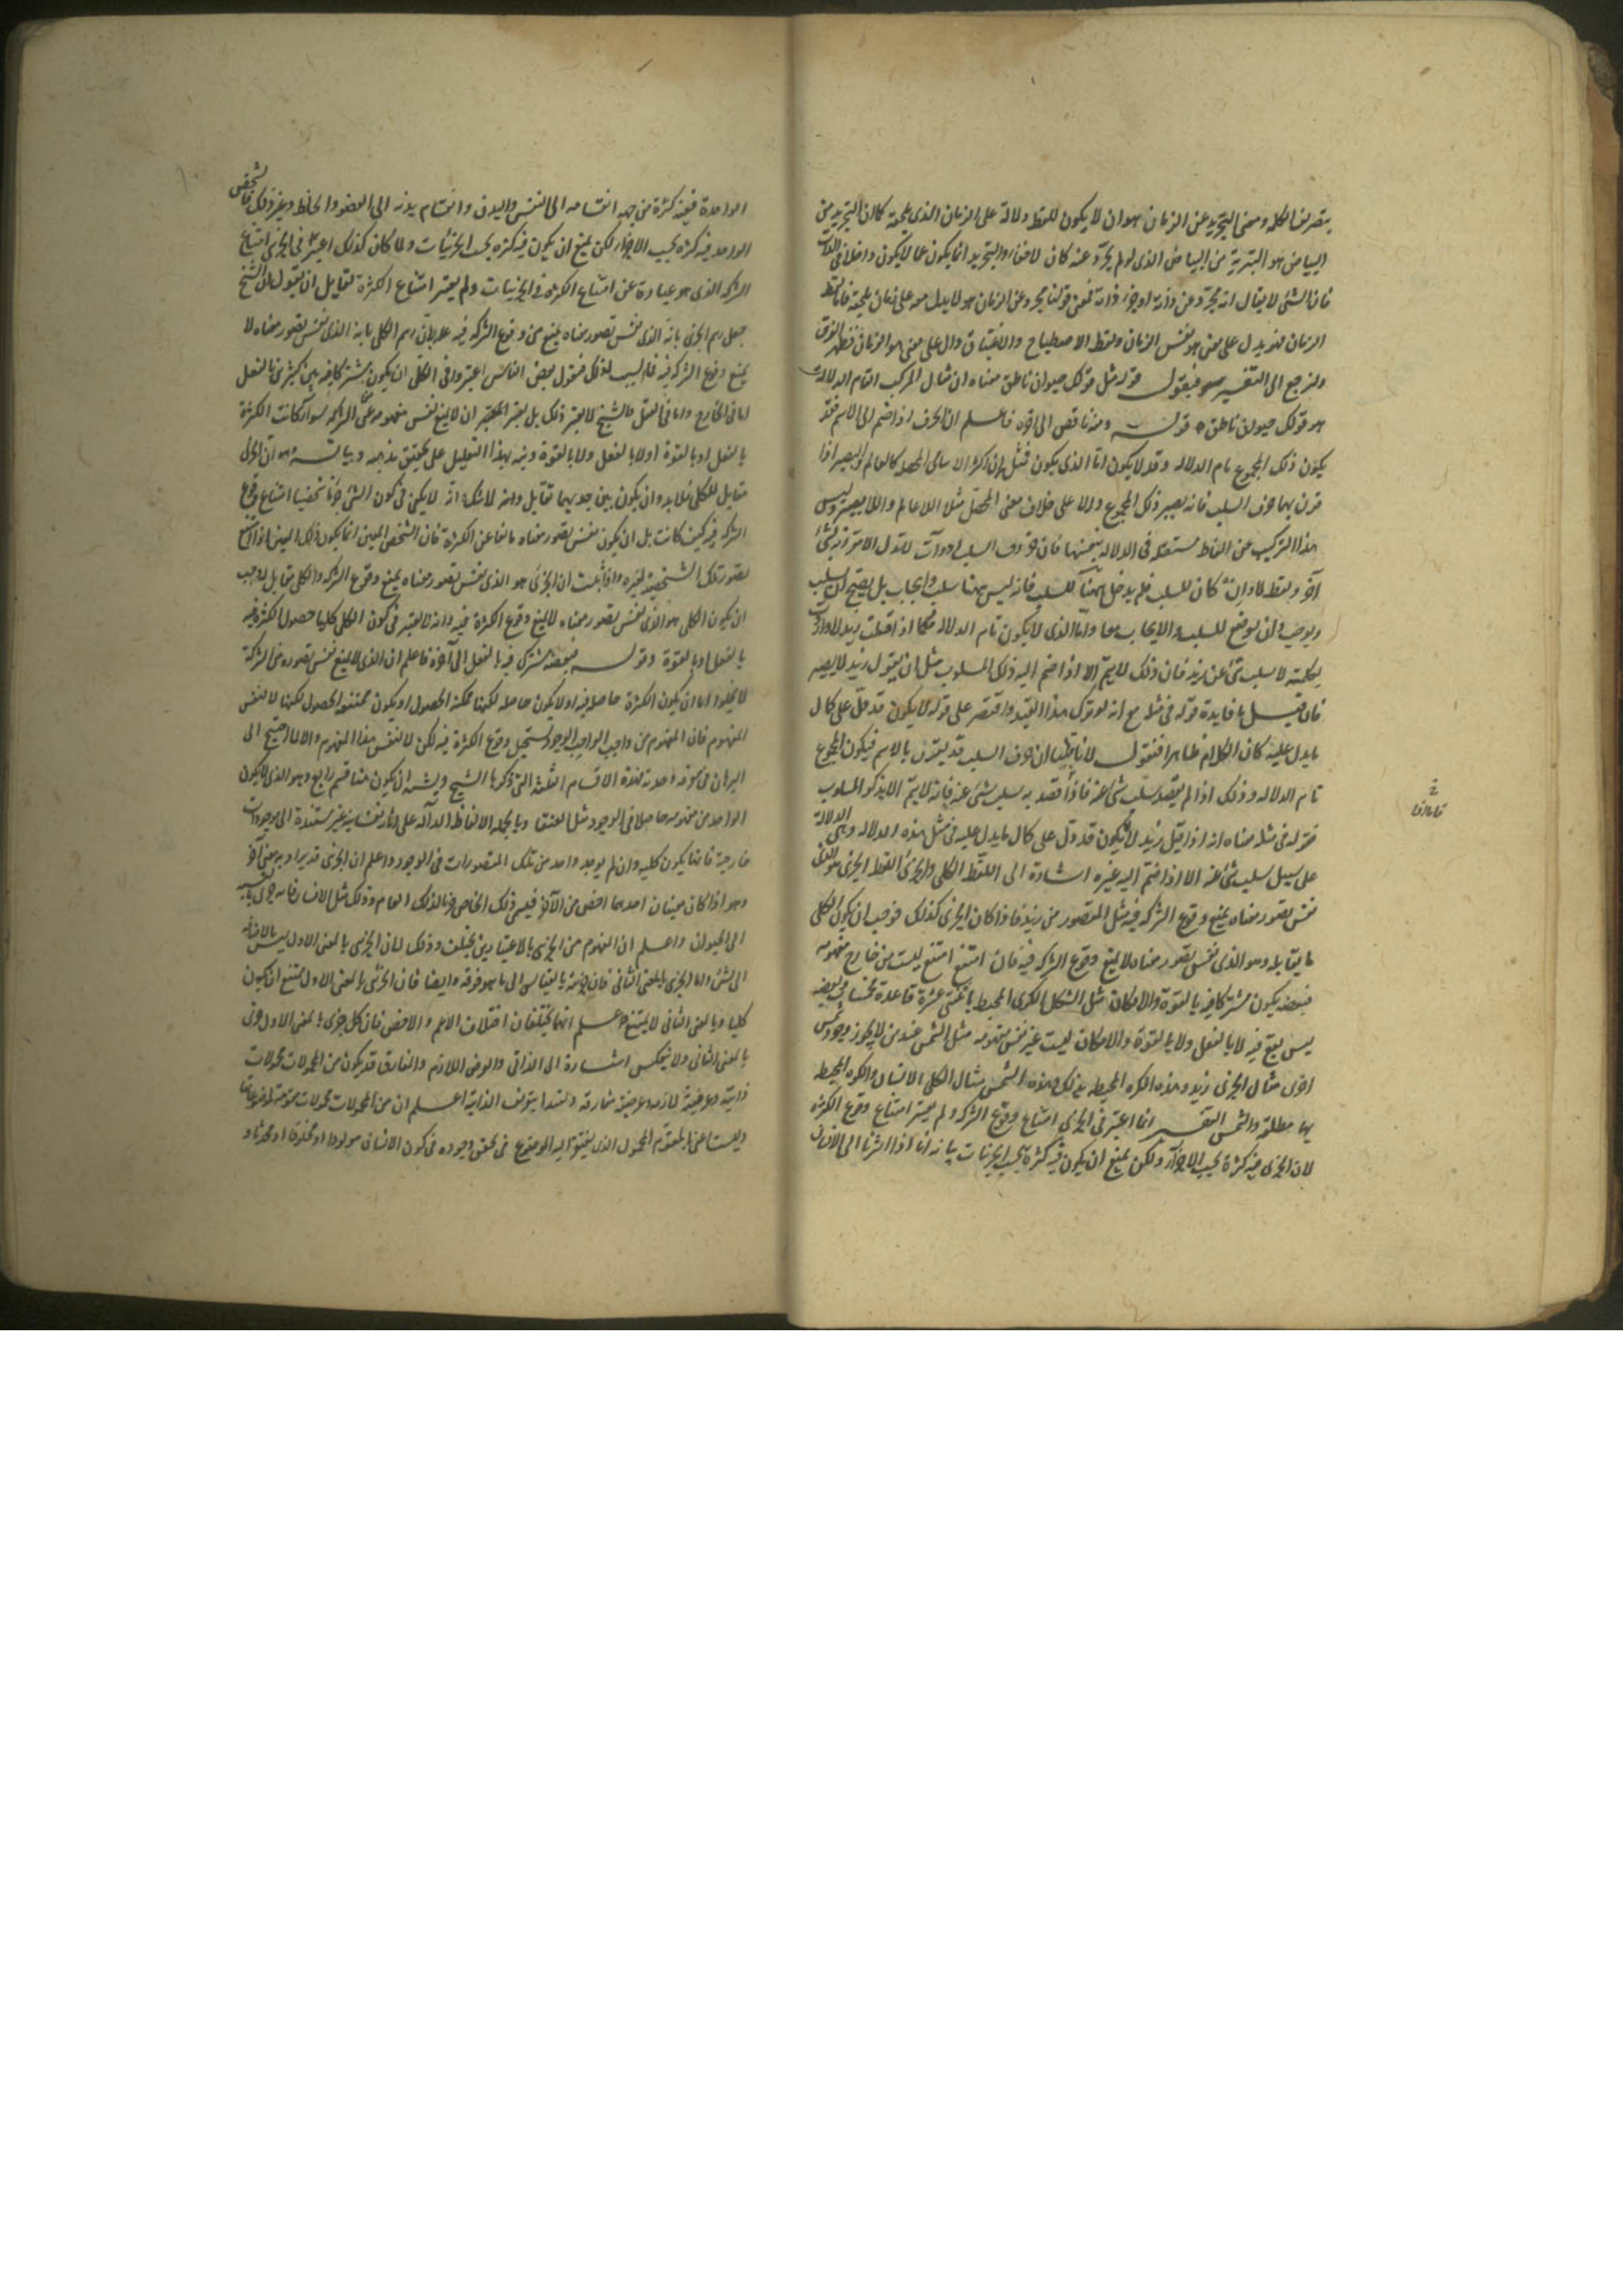 بتصريف الكلمة ومعنى التجريد عن الزمان هو ان لا يكون للفظ دلالة على الزمان الذي يلحقه كما ان التجريد من
البياض هو التبرية من البياض الذي لو لم يجرد عنه كان لاحقا والتجريد انما يكون عما لا يكون داخلا في الذات
فان الشئ لا يقال انه مجرد عن ذاته او جزء ذاته فمعنى قولنا مجرد عن الزمان هو لا يدل معه على زمان يلحقه فاللفظ
الزمان فيدل على معنى هو نفس الزمان ولفظ الاصطباح والاغتباق دال على معنى هو الزمان فظهر الفرق
ولنرجع الى التفسير فنقول قوله مثل قولك حيوان ناطق معناه ان مثال المركب التام الدلالة
هو قولك حيوان ناطق قوله ومنه ناقص الى اخره فاعلم ان الحرف اذا ضم الى الاسم فقد
يكون ذلك المجموع تام الدلالة وقد لا يكون اما الذي يكون فمثل ان اكثر الاسامى المحصلة كالعالم والبصير اذا
قرن بها حرف السلب فانه يصير ذلك المجموع دالا على خلاف معنى المحصل مثلا اللاعالم واللابصير وليس
هذا التركيب عن الفاظ مستقلة في الدلالة بنفسها فان حروف السلب ادوات لا تدل الا مقترنة بشئ
آخر ولفظ لا وان كان للسلب فلم يدخل ههنا للسلب فانه ليس ههنا سلب وايجاب بل يصح ان يسلب
ويوجب وان يوضع للسلب والايجاب معا واما الذي لا يكون تام الدلالة فكما اذا قلت زيد لا واردت
بكلمة لا سلب شئ عن زيد فان ذلك لا يتم الا اذا ضم اليه ذلك المسلوب مثل ان يقول زيد لا يبصر
فان قيل ما فايدة قوله في مثله مع انه لو ترك هذا القيد واقتصر على قوله لا يكون قد دل على كمال
ما يدل عليه كان الكلام ظاهرا فنقول لانا بينا ان حرف السلب قد يقترن بالاسم فيكون المجموع
تام الدلالة وذلك اذا لم يقصد سلب شئ عنه فاذا قصد به سلب شئ عنه فانه لا يتم الا بذكر المسلوب
فقوله في مثله معناه انه اذا قيل زيد لا يكون قد دل على كمال ما يدل عليه في مثل هذه الدلالة وهي الدلالة
على سبيل سلب شئ عنه الا اذا ضم اليه غيره اشارة الى اللفظ الكلي والجزئي اللفظ الجزئي هو الذي
نفس تصور معناه يمنع وقوع الشركة فيه مثل المتصور من زيد فاذا كان الجزئي كذلك فوجب ان يكون الكلي
ما يقابله وهو الذي نفس تصور معناه لا يمنع وقوع الشركة فيه فان امتنع امتنع لسبب من خارج مفهومه
فبعضه يكون مشتركا فيه بالقوة والامكان مثل الشكل الكرى المحيط باثنتي عشرة قاعدة مخمسات وبعضه
ليس يقع فيه لا بالفعل ولا بالقوة والامكان لسبب غير نفس مفهومه مثل الشمس عند من لا يجوز وجود شمس
اخرى مثال الجزئي زيد وهذه الكرة المحيط بذلك وهذه الشمس مثال الكلي الانسان والكرة المحيط
بها مطلقة والشمس التفسير انما اعتبر في الجزئي امتناع وقوع الشركة ولم يعتبر امتناع وقوع الكثرة
لان الجزئي فيه كثرة بحسب الاجزاء ولكن يمنع ان يكون فيه كثرة بحسب الجزئيات بيانه انا اذا اشرنا الى الانسان
الواحد ففيه كثرة من جهة انقسامه الى النفس والبدن وانقسام بدنه الى العضو والخلط وغير ذلك فالشخص
الواحد فيه كثرة بحسب الاجزاء لكن يمنع ان يكون فيه كثرة بحسب الجزئيات ولما كان كذلك اعتبر في الجزئي امتناع
الشركة الذي هو عبارة عن امتناع الكثرة في الجزئيات ولم يعتبر امتناع الكثرة لقايل ان يقول ان الشيخ
جعل رسم الجزئي بانه الذي نفس تصور معناه يمنع من وقوع الشركة فيه علة لان رسم الكلي بانه الذي نفس تصور معناه لا
يمنع وقوع الشركة فيه فلم ليس كذلك فنقول بعض الناس اعتبروا في الكلي ان يكون مشتركا فيه بين كثيرين بالفعل
اما في الخارج واما في العقل فالشيخ لا يعتبر ذلك بل يعتبر ان لا يمنع نفس مفهومه عن الشركة سواء كانت الكثرة
بالفعل او بالقوة او لا بالفعل ولا بالقوة ونبه بهذا التعليل على تحقيق مذهبه وبيانه هو ان الجزئي
مقابل للكلي فلا بد وان يكون بين حديهما تقابل ولا شك انه لا يكفى في كون الشئ جزئيا شخصيا امتناع وقوع
الشركة فيه كيف كانت بل ان يكون نفس تصور معناه مانعا عن الكثرة فان الشخص المعين انما يكون ذلك المعين اذا امتنع
تصور تلك الشخصية لغيره واذا ثبت ان الجزئي هو الذي نفس تصور معناه يمنع وقوع الشركة والكلي مقابل له وجب
ان يكون الكلي هو الذي نفس تصور معناه لا يمنع وقوع الكثرة فيه وانه لا يعتبر في كون الكلي كليا حصول الكثرة فيه
بالفعل او بالقوة وقوله فبعضه مشترك فيه بالفعل الى آخره فاعلم ان الذي لا يمنع نفس تصوره من الشركة
لا يخلو اما ان يكون الكثرة حاصلة فيه او لا يكون حاصلة لكنها ممكنة الحصول او يكون ممتنعة الحصول لكنها لا لنفس
المفهوم فان المفهوم من واجب الوجود يستحيل وقوع الكثرة فيه لكن لا لنفس هذا المفهوم والا لما احتيج الى
البرهان في معرفة وحدته فهذه الاقسام الثلثة التي ذكرها الشيخ ويشبه ان يكون هنا قسم رابع وهو الذي لا يكون
الواحد من مفهومه حاصلا في الوجود مثل العنقا وبالجملة الالفاظ الدالة على آثار نفسانية غير مستندة الى موجودات
خارجة فانها يكون كلية وان لم يوجد واحد من تلك المتصورات في الوجود واعلم ان الجزئي قد يراد به معنى آخر
وهو اذا كان معنيان احدهما اخص من الآخر فيسمى ذلك الخاص جزئيا لذلك العام وذلك مثل الانسان فانه جزئي بالنسبة
الى الحيوان واعلم ان المفهوم من الجزئي بالاعتبارين مختلف وذلك لان الجزئي بالمعنى الاول ليس بالاضافة
الى شئ واما الجزئي بالمعنى الثاني فان جزئيته بالقياس الى ما هو فوقه وايضا فان الجزئي بالمعنى الاول يمتنع ان يكون
كليا وبالمعنى الثاني لا يمتنع واعلم انهما يختلفان اختلاف الاعم والاخص فان كل جزئي بالمعنى الاول جزئي
بالمعنى الثاني ولا ينعكس اشارة الى الذاتي والعرضى اللازم والمفارق قد يكون من المحمولات محمولات
ذاتية وعرضية لازمة وعرضية مفارقة ولنبدا بتعريف الذاتية اعلم ان من المحمولات محمولات مقومة لموضوعاتها
ولست اعنى بالمقوم المحمول الذي يفتقر اليه الموضوع في تحقق وجوده ككون الانسان مولودا او مخلوقا او محدثا و